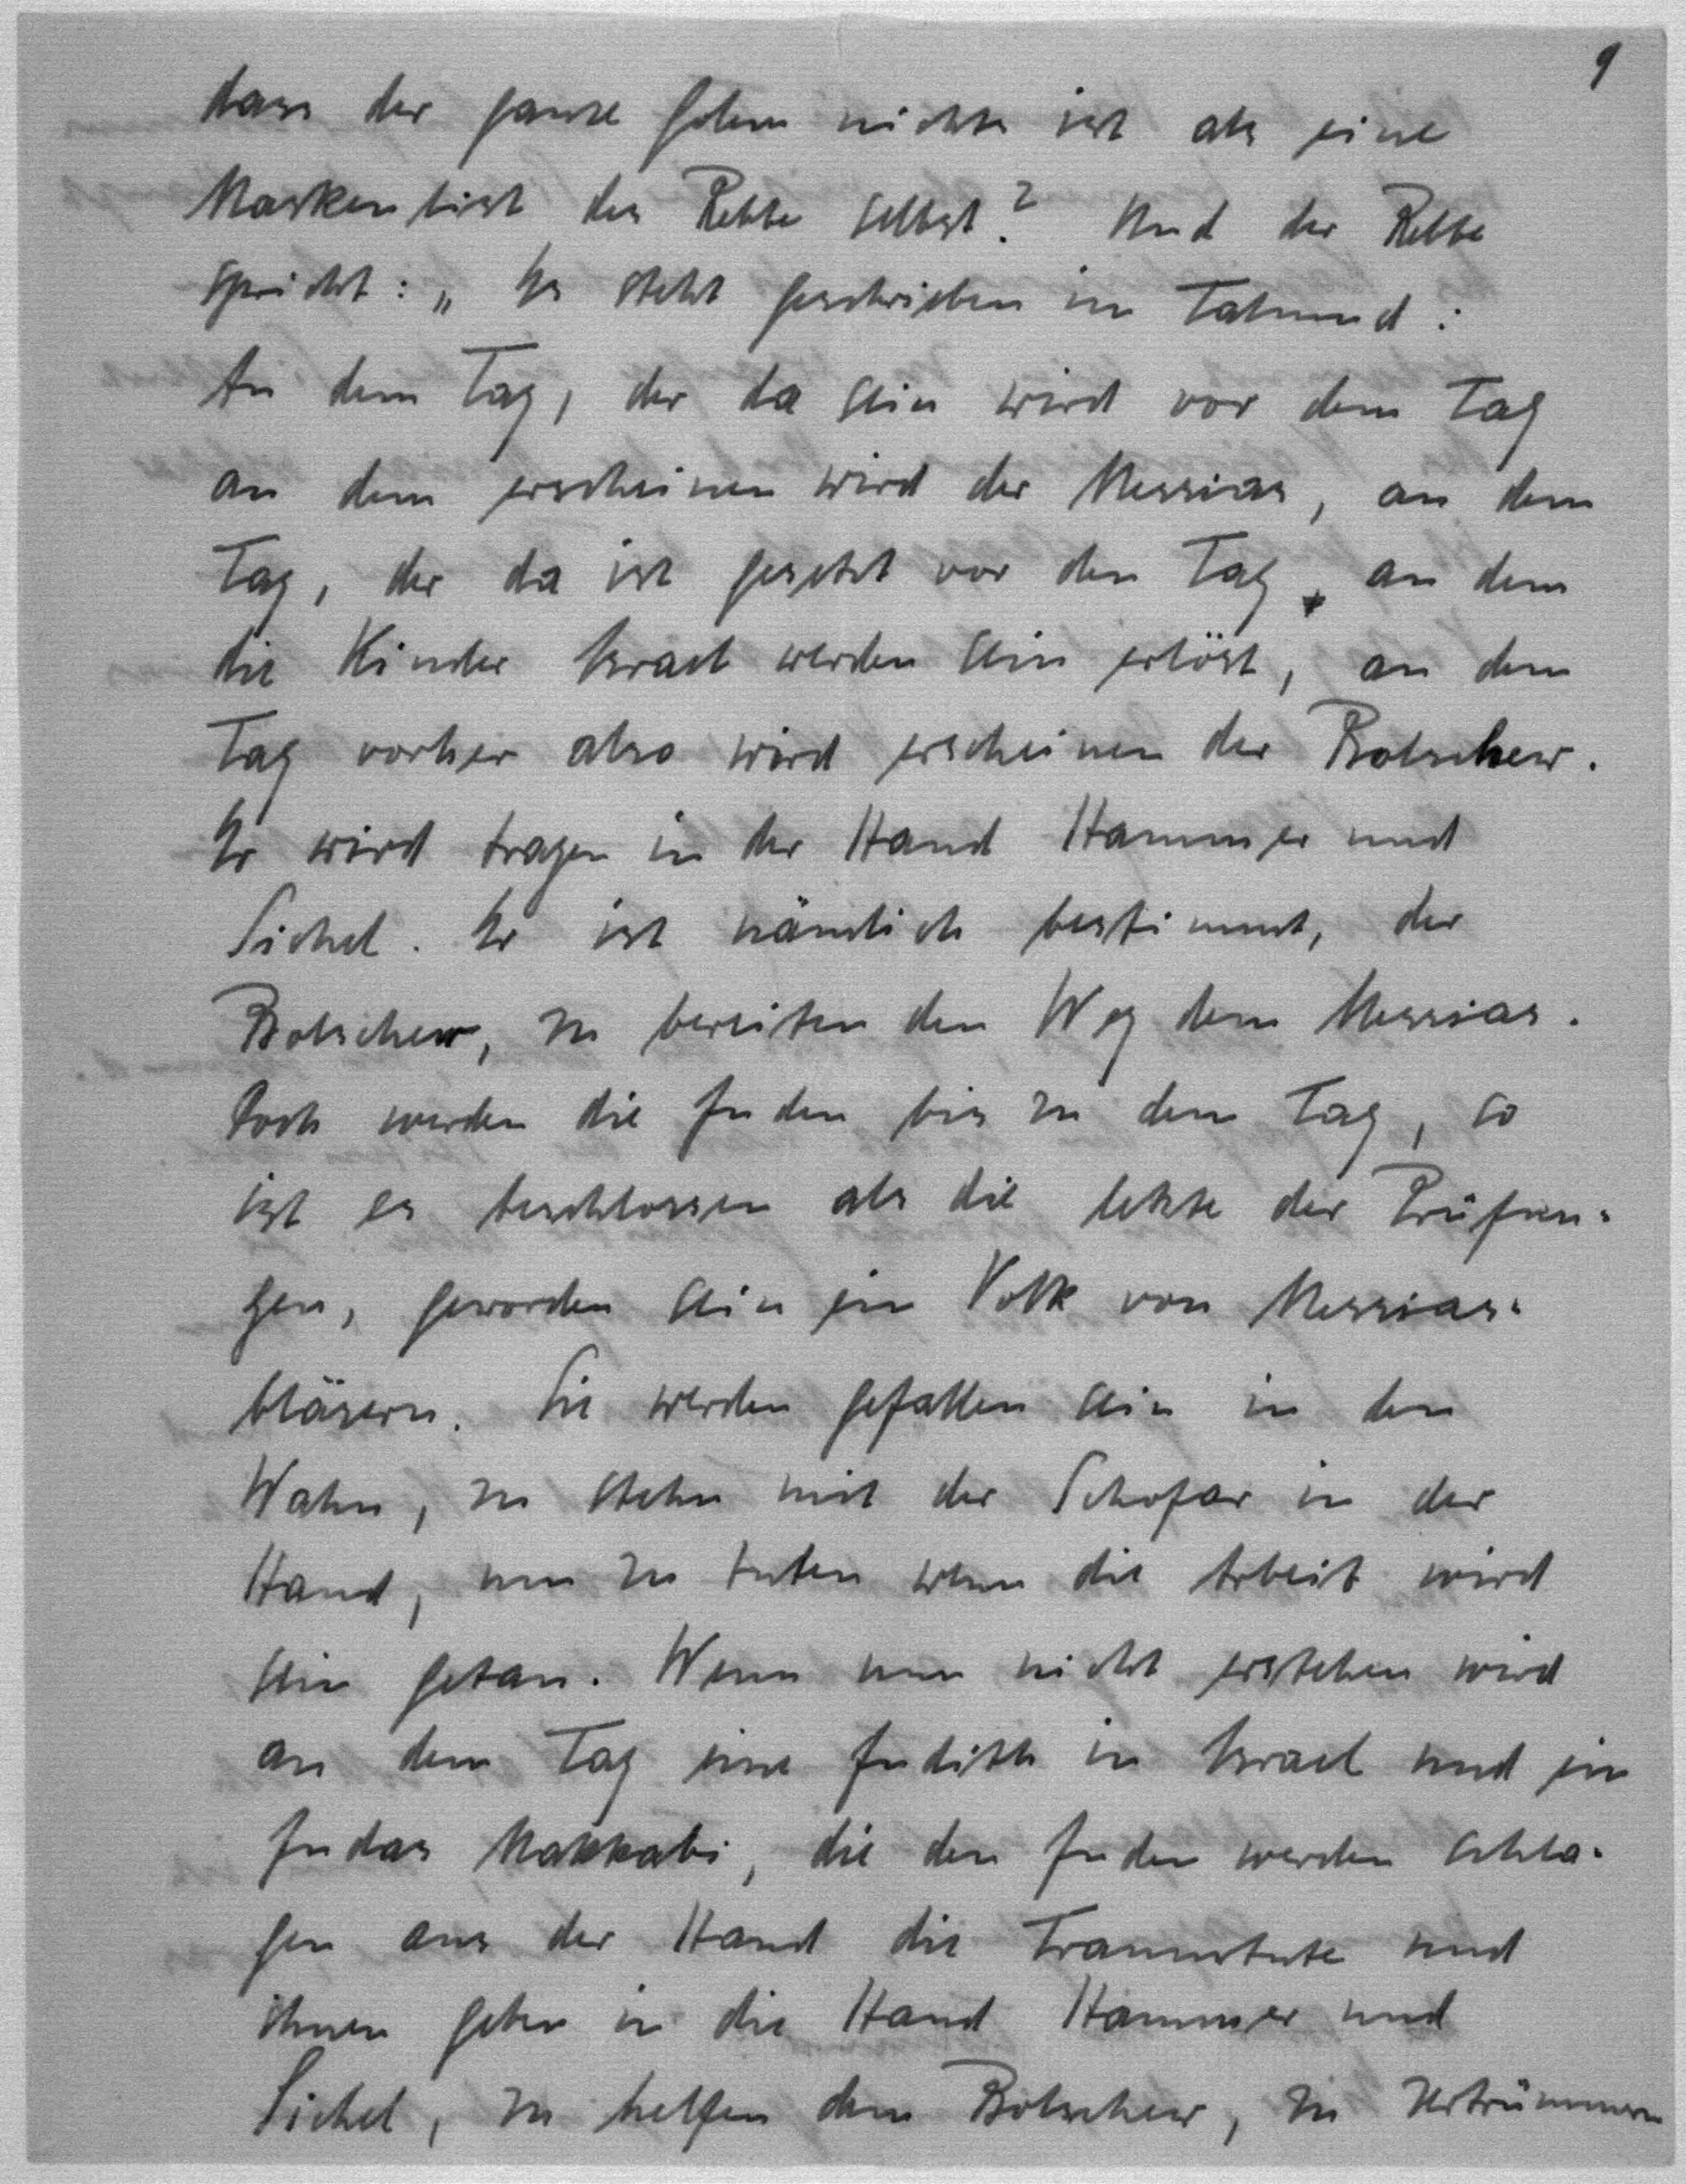 9
dass der ganze Golem nichts ist als eine
Maskenlist des Rebbe selbst? Und der Rebbe
spricht: „ Es steht geschrieben im Talmud :
An dem Tag, der da sein wird vor dem Tag
an dem erscheinen wird der Messias, an dem
Tag, der da ist gesetzt vor den Tag, an dem
die Kinder Israel werden sein erlöst, an dem
Tag vorher also wird erscheinen der Bolschew.
Er wird tragen in der Hand Hammer und
Sichel. Er ist nämlich bestimmt, der
Bolschew, zu bereiten den Weg dem Messias.
Doch werden die Juden bis zu dem Tag, so
ist es beschlossen als die letzte der Prüfun-
gen, geworden sein ein Volk von Messias-
bläsern. Sie werden gefallen sein in den
Wahn, zu stehn mit der Schofar in der
Hand, um zu tuten wenn die Arbeit wird
sein getan. Wenn nun nicht erstehen wird
an dem Tag eine Judith in Israel und ein
Judas Makkabi, die den Juden werden schla-
gen aus der Hand die Traumtute und
ihnen geben in die Hand Hammer und
Sichel, zu helfen dem Bolschew, zu zertrümmern